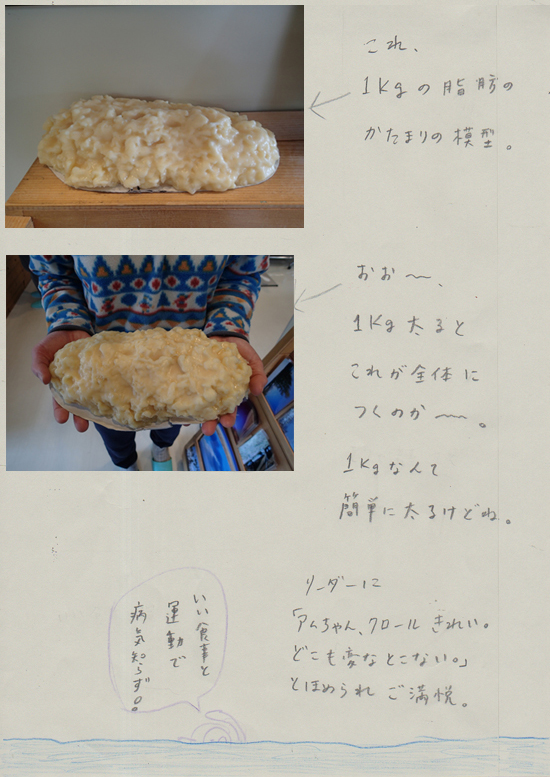 これ、
1Kgの脂肪の
かたまりの模型。
おお〜、
1Kg太ると
これが全体に
つくのか〜。
1Kgなんて
簡単に太るけどね。
リーダーに
「アムちゃん、クロールきれい。
どこも変なとこない。」
とほめられご満悦。
いい食事と
運動で
病気知らず。